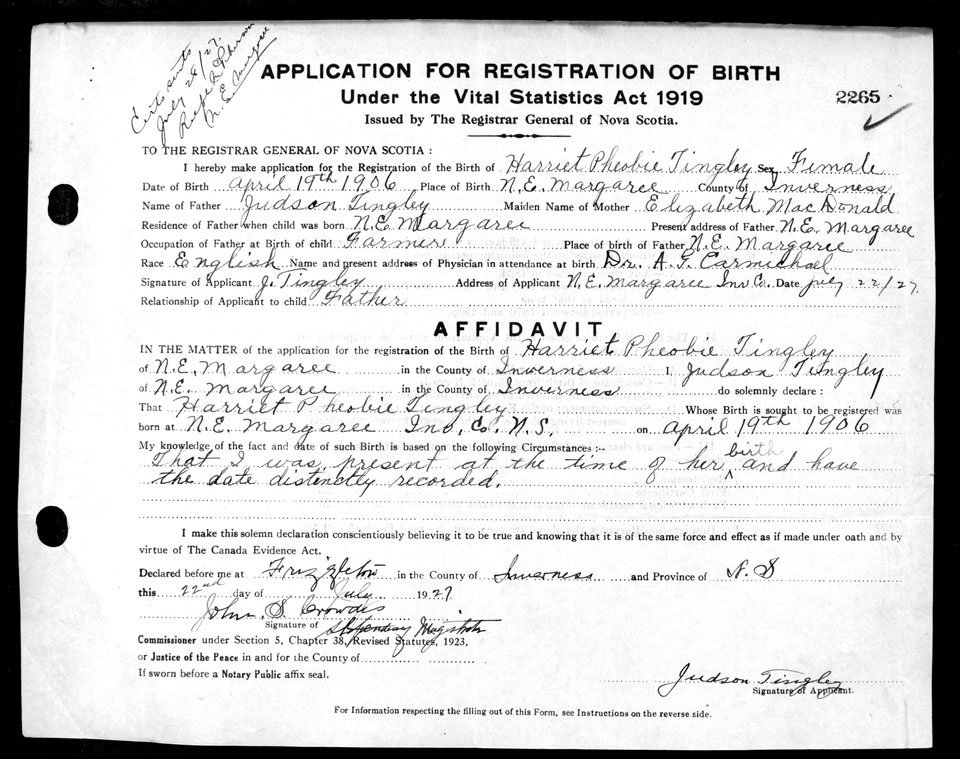 Certs sent
July 28/27.
N. E. Margaree
APPLICATION FOR REGISTRATION OF BIRTH
Under the Vital Statistics Act 1919
2265
Issued by The Registrar General of Nova Scotia.
TO THE REGISTRAR GENERAL OF NOVA SCOTIA :
I hereby make application for the Registration of the Birth of Harriet Pheobie Tingley Sex Female
Date of Birth April 19th 1906 Place of Birth N.E. Margaree County of Inverness
Name of Father Judson Tingley Maiden Name of Mother Elizabeth MacDonald
Residence of Father when child was born N.E. Margaree Present address of Father N.E. Margaree
Occupation of Father at Birth of child Farmer Place of birth of Father N.E. Margaree
Race English Name and present address of Physician in attendance at birth Dr. A.G. Carmichael
Signature of Applicant J. Tingley Address of Applicant N.E. Margaree Inv Co. Date July 22/27.
Relationship of Applicant to child Father
AFFIDAVIT
IN THE MATTER of the application for the registration of the Birth of Harriet Pheobie Tingley
of N.E. Margaree in the County of Inverness I, Judson Tingley
of N.E. Margaree in the County of Inverness do solemnly declare :
That Harriet Pheobie Tingley Whose Birth is sought to be registered was
born at N.E. Margaree Inv. Co. N.S. on April 19th 1906
My knowledge of the fact and date of such Birth is based on the following Circumstances :--
That I was present at the time of her birth and have
the date distinctly recorded.
I make this solemn declaration conscientiously believing it to be true and knowing that it is of the same force and effect as if made under oath and by
virtue of The Canada Evidence Act.
Declared before me at Frizzleton in the County of Inverness and Province of N.S
this 22nd day of July 1927
John S. Crowdis
Signature of Stipendiary Magistrate
Commissioner under Section 5, Chapter 38, Revised Statutes, 1923,
or Justice of the Peace in and for the County of
If sworn before a Notary Public affix seal.
Judson Tingley
Signature of Applicant.
For Information respecting the filling out of this Form, see Instructions on the reverse side.